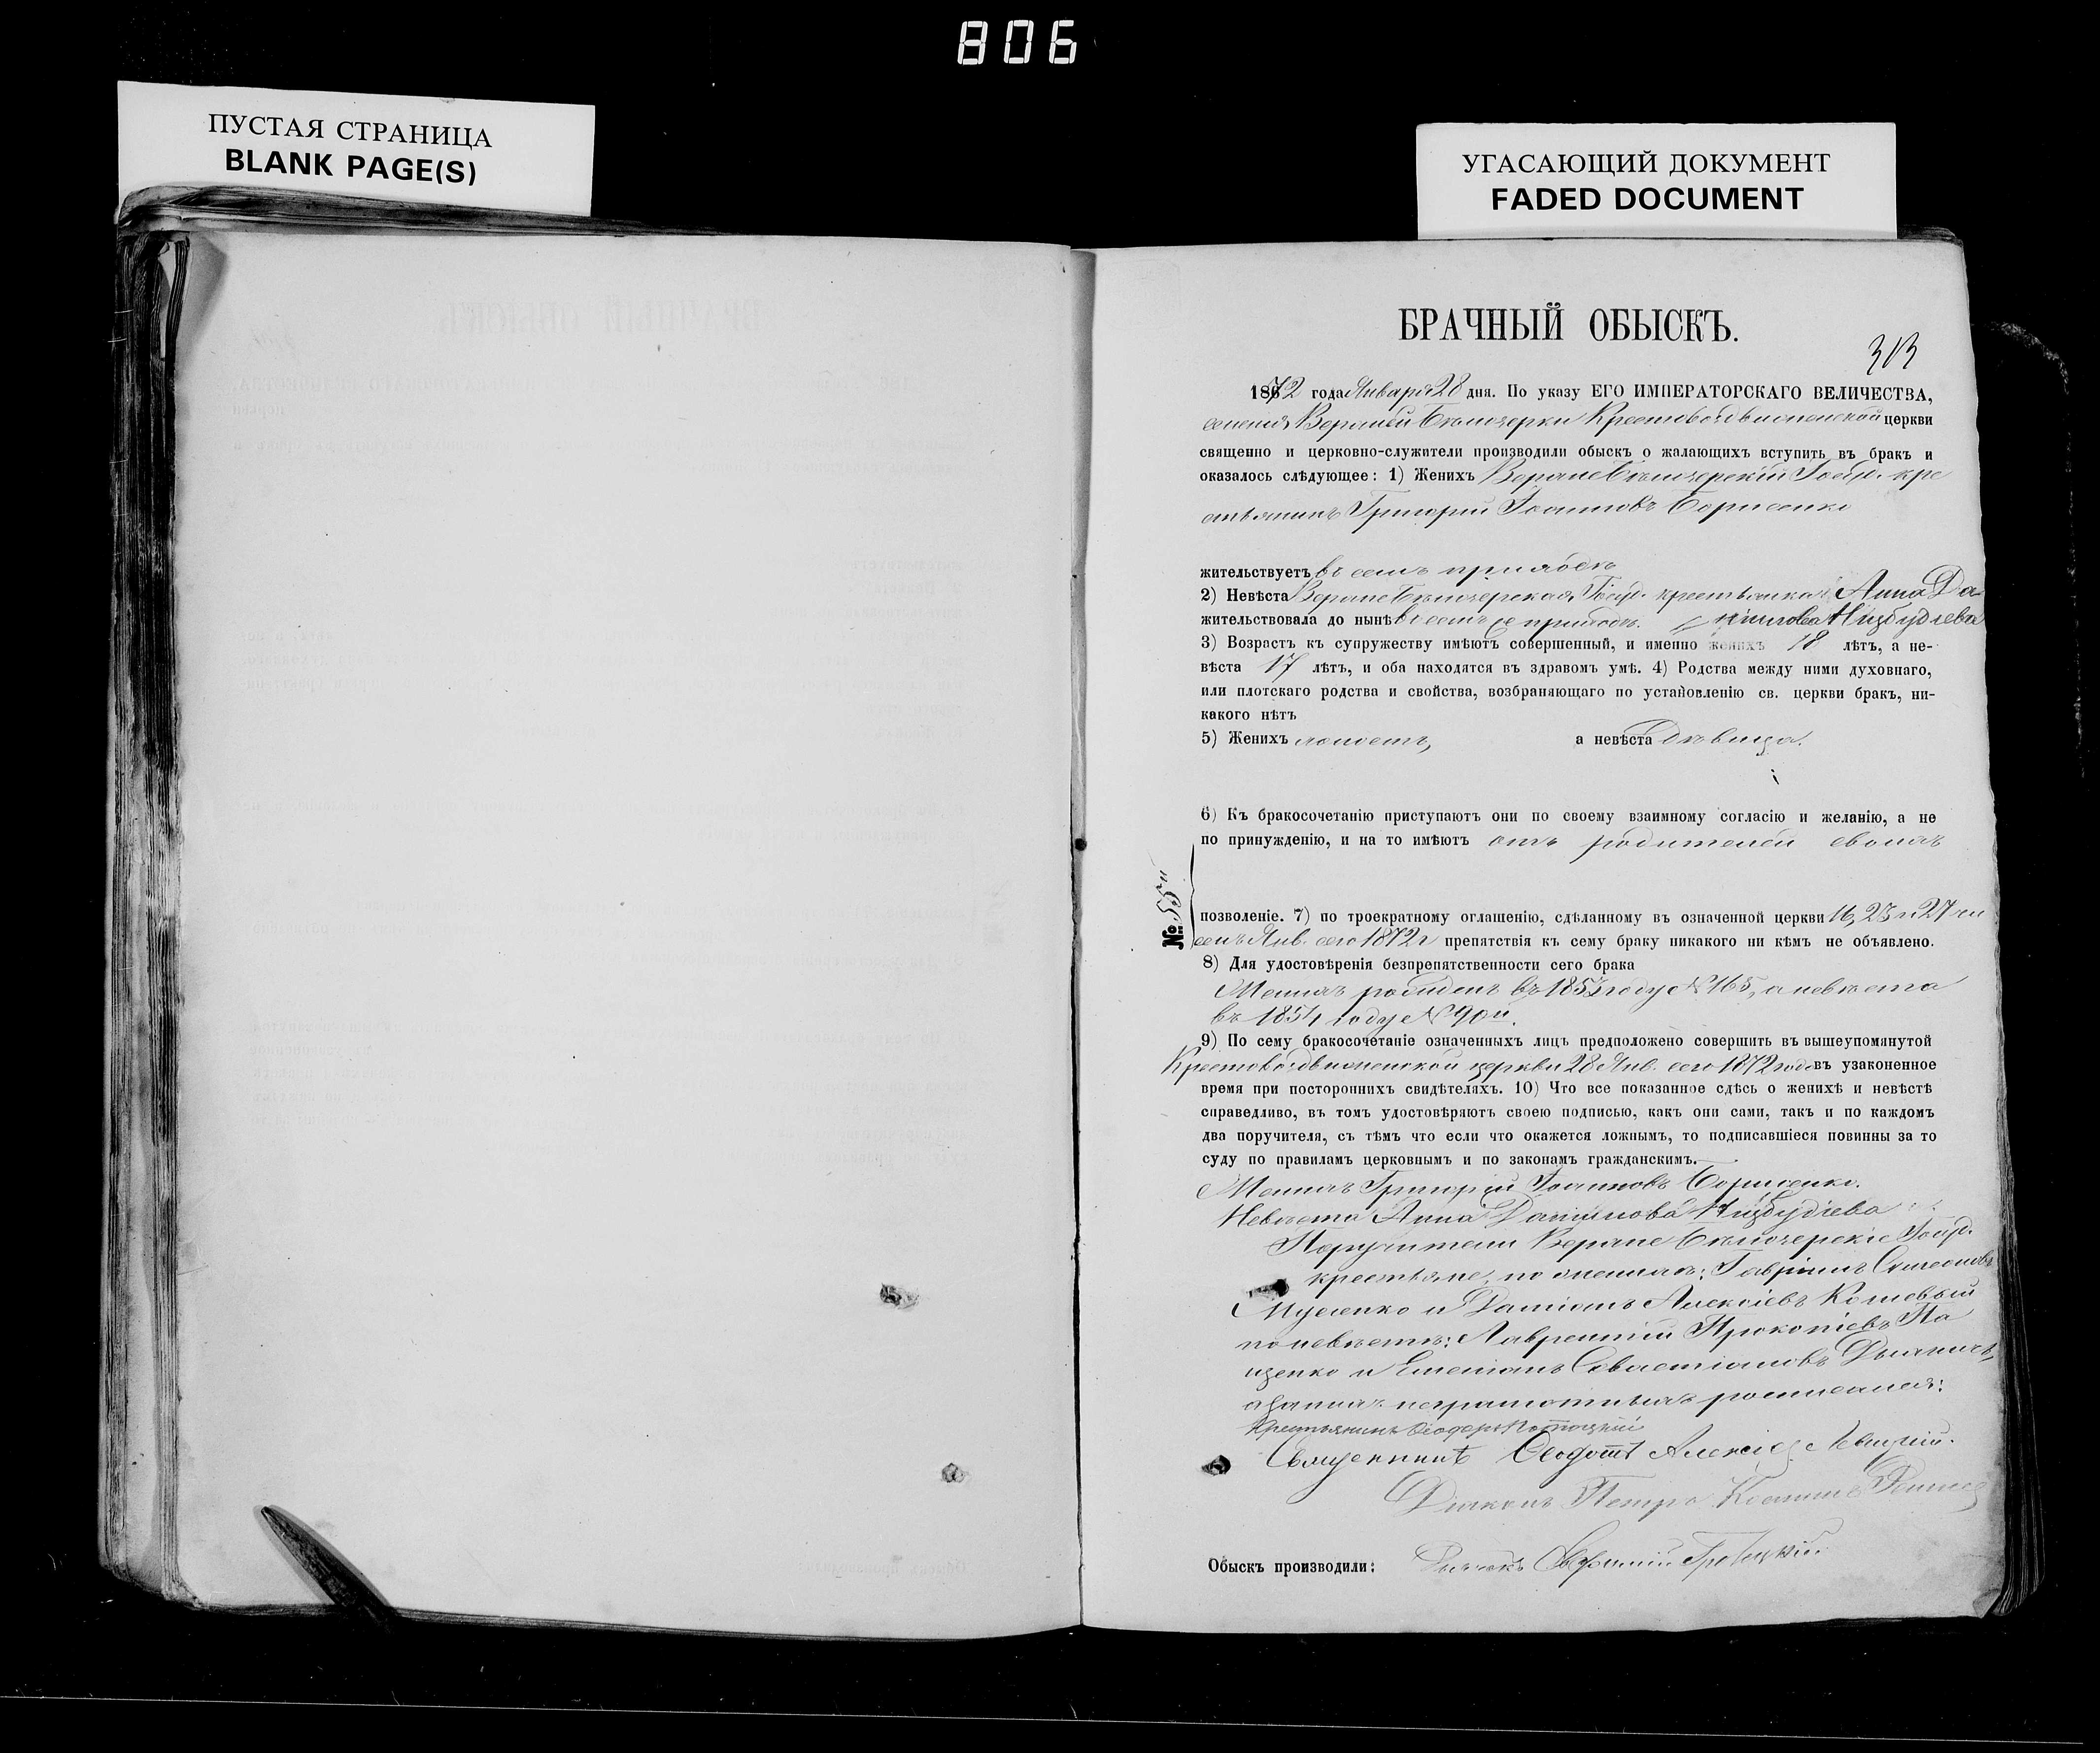 806
ПУСТАЯ СТРАНИЦА
BLANK PAGE(S)
УГАСАЮЩИЙ ДОКУМЕНТ
FADED DOCUMENT
БРАЧНЫЙ ОБЫСКЪ.
313
1872 года Января 28 дня. По указу ЕГО ИМПЕРАТОРСКАГО ВЕЛИЧЕСТВА,
селенія Верхней Бѣлозерки Крестовоздвиженской церкви
священно и церковно-служители производили обыскъ о жалающихъ вступить въ бракъ и
оказалось слѣдующее: 1) Женихъ Верхнебѣлозерскій Госуд. кре
стьянинъ Григорій Іоанновъ Борисенко
жительствуетъ въ семъ приходѣ
2) Невѣста Верхнебѣлозерская Госуд. крестьянка Анна Да-
жительствовала до нынѣ въ семъ же приходѣ. ніилова
3) Возрастъ къ супружеству имѣютъ совершенный, и именно женихъ 18 лѣтъ, а не-
вѣста 17 лѣтъ, и оба находятся въ здравомъ умѣ. 4) Родства между ними духовнаго,
или плотскаго родства и свойства, возбраняющаго по установленію св. церкви бракъ, ни-
какого нѣтъ
5) Женихъ холостъ, а невѣста Дѣвица.
6) Къ бракосочетанію приступаютъ они по своему взаимному согласію и желанію, а не
по принужденію, и на то имѣютъ отъ родителей своихъ
№ 55й
позволеніе. 7) по троекратному оглашенію, сдѣланному въ означенной церкви 16, 23 и 27 чи
селъ Янв. сего 1872 г препятствія къ сему браку никакого ни кѣмъ не объявлено.
8) Для удостовѣренія безпрепятственности сего брака
Женихъ рожденъ въ 1853 году № 165, а невѣста
въ 1854 году № 90й.
9) По сему бракосочетаніе означенныхъ лицъ предположено совершить въ вышеупомянутой
Крестовоздвиженской церкви 28 Янв. сего 1872 года въ узаконенное
время при постороннихъ свидѣтеляхъ. 10) Что все показанное сдѣсь о женихѣ и невѣстѣ
справедливо, въ томъ удостовѣряютъ своею подписью, какъ они сами, такъ и по каждомъ
два поручителя, съ тѣмъ что если что окажется ложнымъ, то подписавшіеся повинны за то
суду по правиламъ церковнымъ и по законамъ гражданскимъ.
Женихъ Григорій Іоанновъ Борисенко.
Невѣста Анна Даніилова
Поручители Верхнебѣлозерскіе Госуд.
крестьяне, по женихѣ: Гавріилъ Симеоновъ
и Даміанъ Алексіевъ Кошевый
по невѣстѣ: Лаврентій Прокопіевъ Па
щенко и Емеліанъ Севастіановъ
а за нихъ неграмотныхъ росписался:
Крестьянинъ Ѳеодоръ
Священникъ Ѳеодотъ Алексіев Левицкій.
Діаконъ Петръ
Обыскъ производили: Дьячокъ